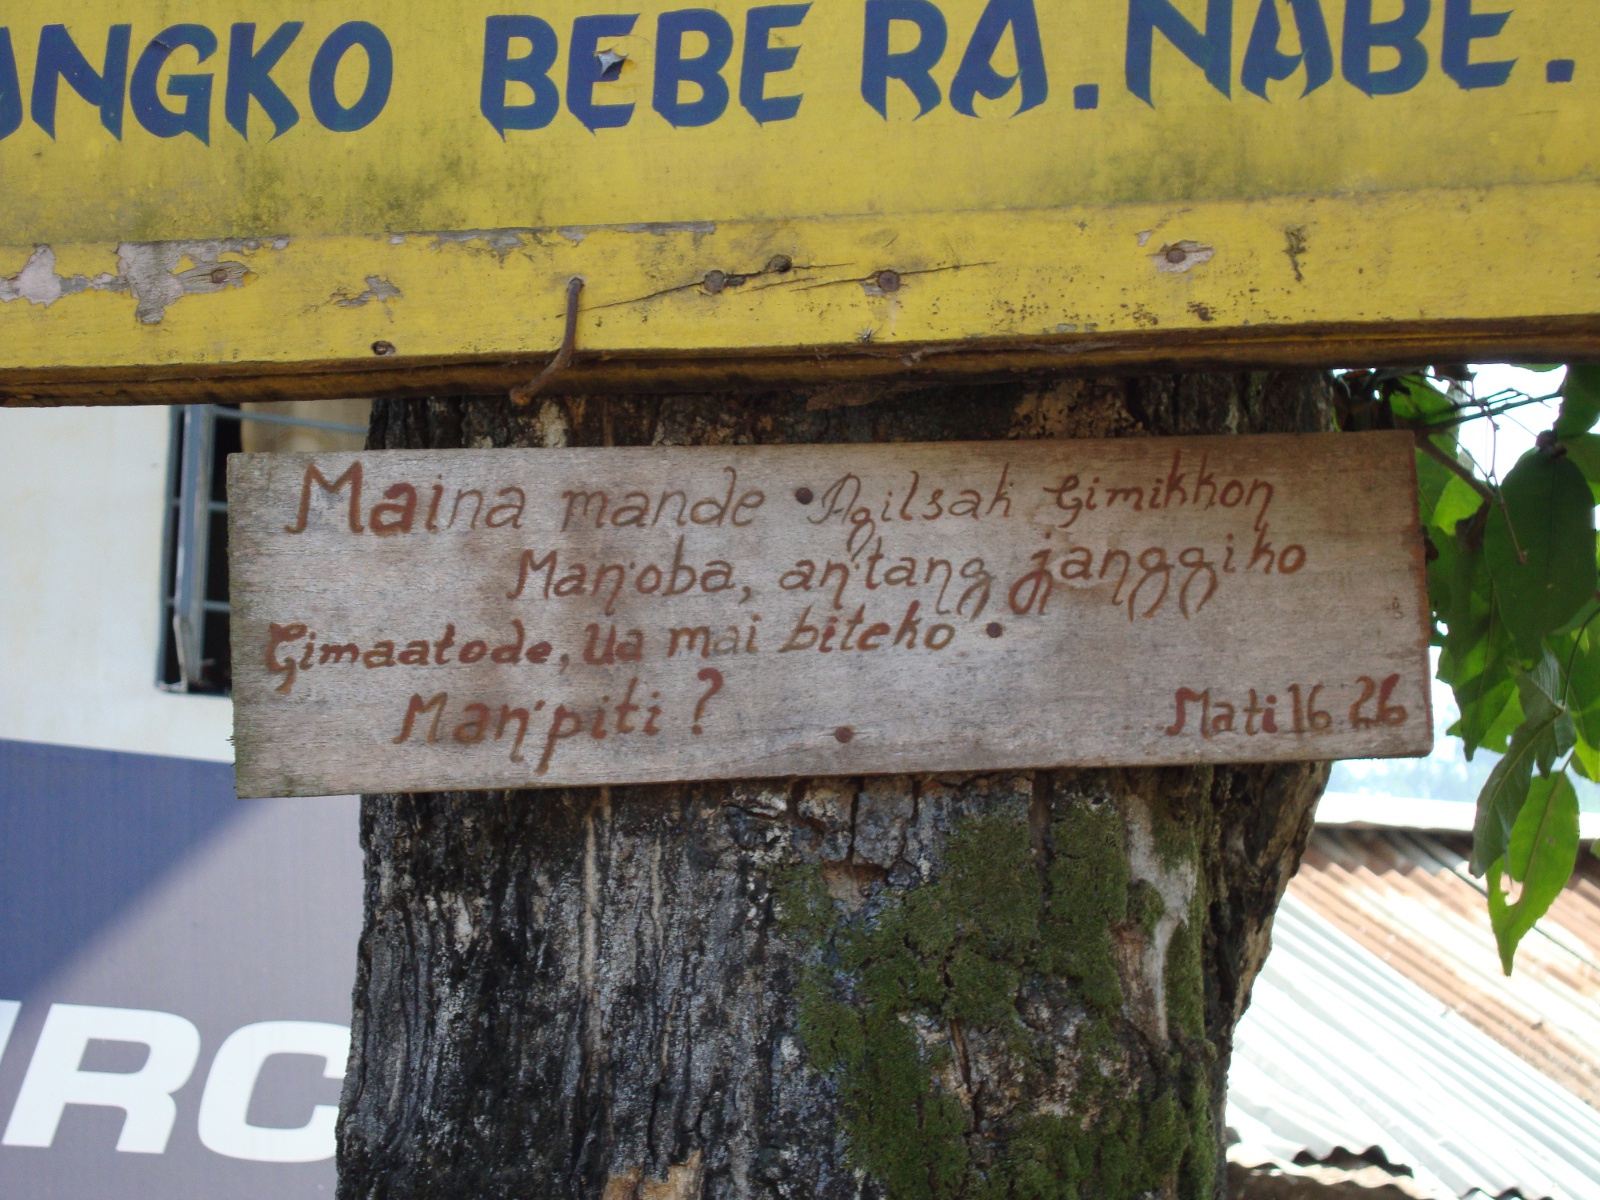 ANGKO BEBE RA. NABE.
Maina mande Agilsak Gimikkon
Man·oba, an·tang janggiko
Gimaatode, Ua mai biteko
Man'piti ? Mati 16 26
RC